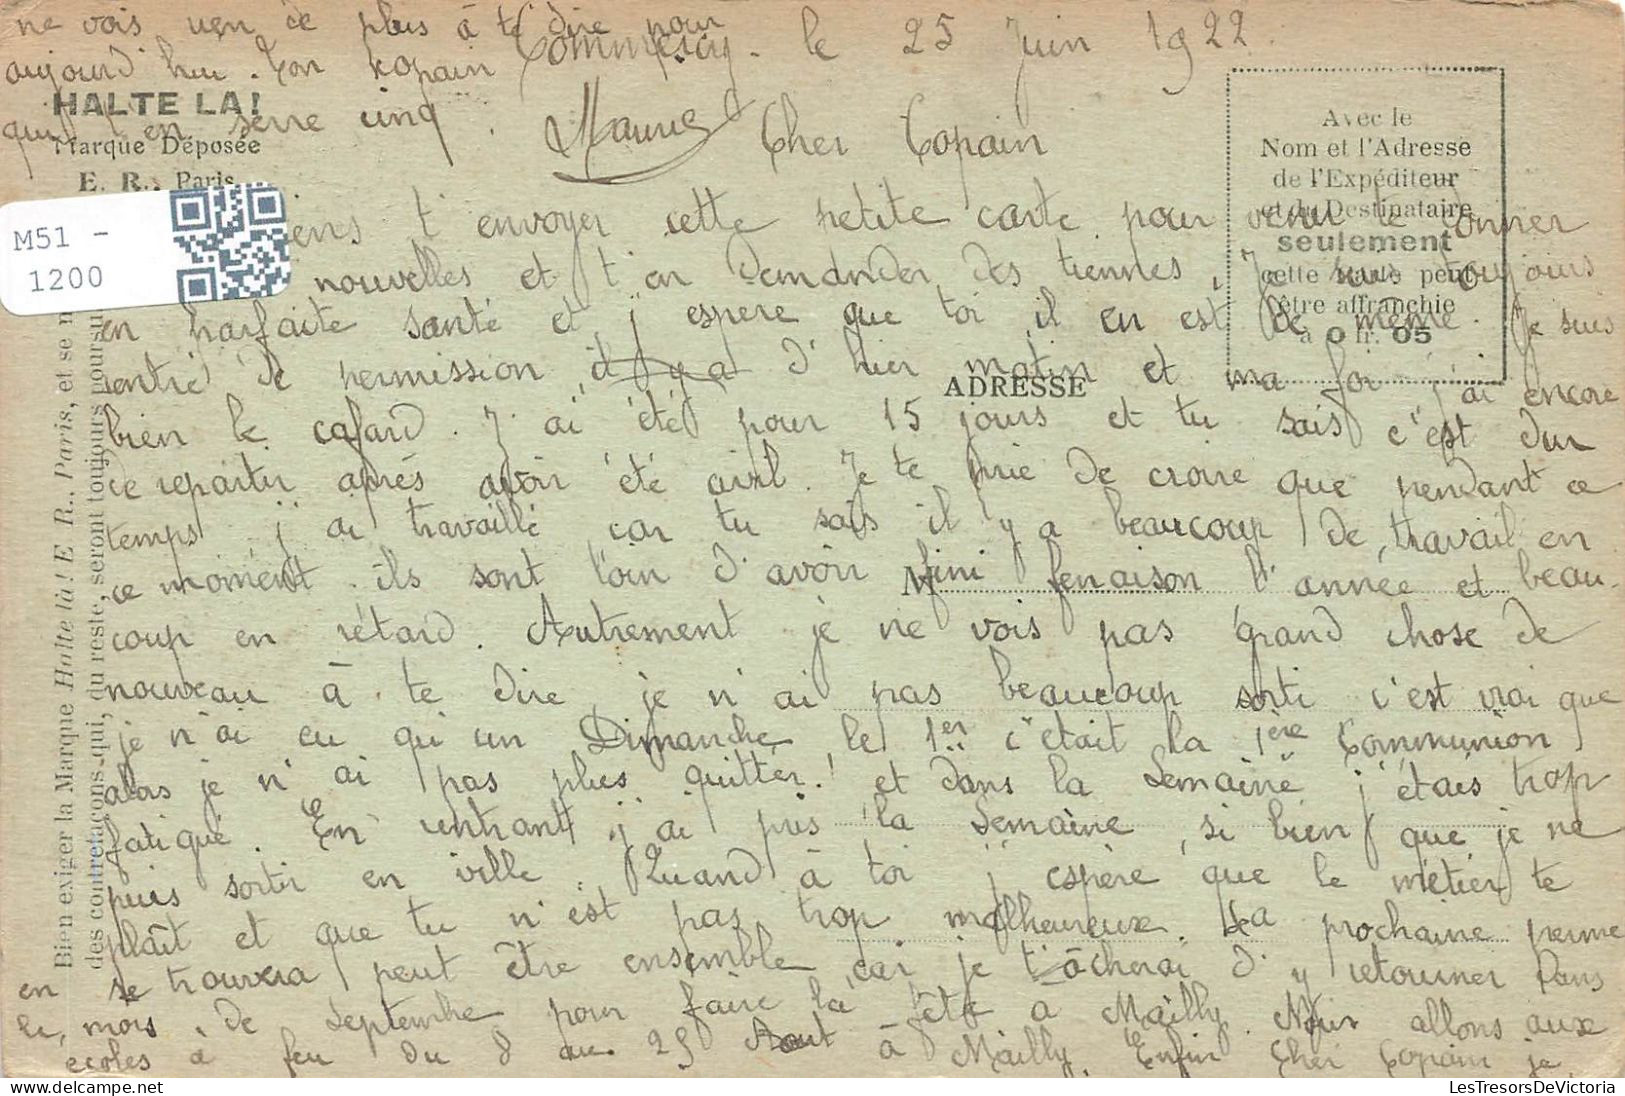 Commercy. le 25 Juin 1922.
Cher Copain
iens t'envoyer cette petite carte pour venir te donner
nouvelles et t'en demander des tiennes, Je suis toujours
en parfaite santé et j'espere que toi il en est de même. Je suis
rentré de permission d'hier matin et ma foi j'ai encore
bien le cafard. J'ai été pour 15 jours et tu sais c'est dur
de repartir aprés avoir été civil. Je te prie de croire que pendant ce
temps j'ai travaillé car tu sais il y a beaucoup de travail en
ce moment. ils sont loin d'avoir fini fenaison l'année et beau-
coup en rétard. Autrement je ne vois pas grand chose de
nouveau à te dire, je n'ai pas beaucoup sorti c'est vrai que
je n'ai eu qu'un Dimanche le 1er c'était la 1ère Communion
alors je n'ai pas plus quitter! et dans la Semaine j'étais trop
fatigué. En rentrant j'ai pris la Semaine, si bien que je ne
puis sortir en ville. Quand à toi j'espère que le métier te
plaît et que tu n'est pas trop malheureux. La prochaine perme
se trouvera peut être ensemble car je tâcherai d'y retourner dans
le mois de Septembre pour faire la fête a Mailly. Nous allons aux
écoles à feu du 8 au 25 Aout à Mailly. Enfin Cher Copain je
ne vois rien de plus à te dire pour
aujourd'hui. Ton kopain
qui t'en serre cinq.
Maurice
HALTE LA!
Marque Déposée
E. R., Paris
Bien exiger la Marque Halte là! E. R., Paris, et se m
des contrefaçons qui, du reste, seront toujours poursui
Avec le
Nom et l'Adresse
de l'Expéditeur
et du Destinataire
seulement
cette carte peut
être affranchie
à 0 fr. 05
ADRESSE
M
M51 -
1200
LesTresorsDeVictoria